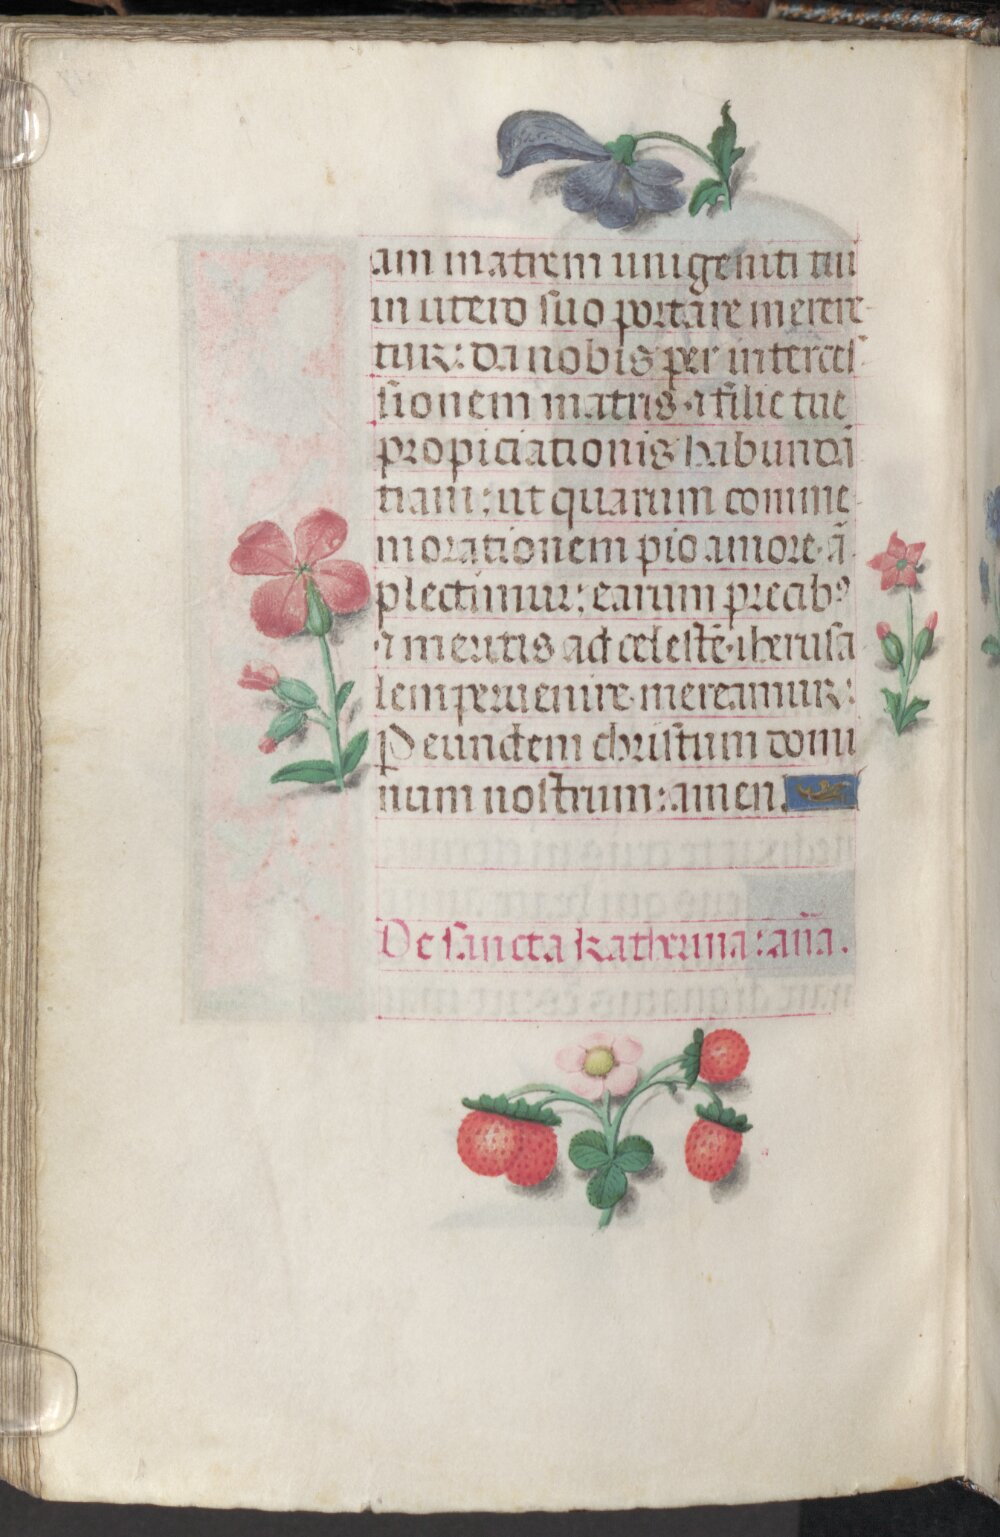 am matrem unigeniti tui
in utero suo portare merere-
tur: da nobis per interces-
sionem matris ⁊ filie tue
propiciationis habundā
tiam: ut quarum comme-
morationem pio amore ā-
plectimur: earum precibꝰ
⁊ meritis ad celestē iherusa
lem pervenire mereamur:
P eundem christum domi
num nostrum: amen.
De sancta Katherina: añа.